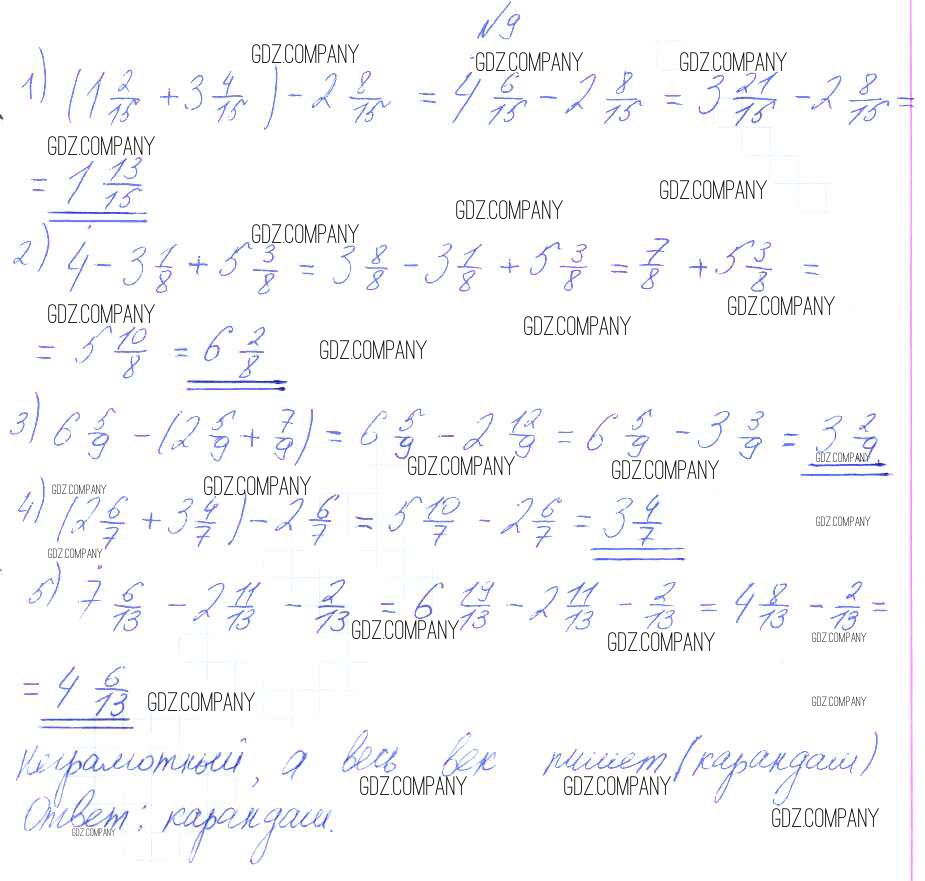 №9
GDZ.COMPANY GDZ.COMPANY GDZ.COMPANY
1) (1 2/15 + 3 4/15) - 2 8/15 = 4 6/15 - 2 8/15 = 3 21/15 - 2 8/15 =
GDZ.COMPANY
= 1 13/15
GDZ.COMPANY
GDZ.COMPANY
GDZ.COMPANY
2) 4 - 3 1/8 + 5 3/8 = 3 8/8 - 3 1/8 + 5 3/8 = 7/8 + 5 3/8 =
GDZ.COMPANY GDZ.COMPANY GDZ.COMPANY
= 5 10/8 = 6 2/8
GDZ.COMPANY
3) 6 5/9 - (2 5/9 + 7/9) = 6 5/9 - 2 12/9 = 6 5/9 - 3 3/9 = 3 2/9
GDZ.COMPANY GDZ.COMPANY GDZ.COMPANY
GDZ.COMPANY GDZ.COMPANY
4) (2 6/7 + 3 4/7) - 2 6/7 = 5 10/7 - 2 6/7 = 3 4/7
GDZ.COMPANY
GDZ.COMPANY
5) 7 6/13 - 2 11/13 - 2/13 = 6 19/13 - 2 11/13 - 2/13 = 4 8/13 - 2/13 =
GDZ.COMPANY GDZ.COMPANY GDZ.COMPANY
= 4 6/13
GDZ.COMPANY GDZ.COMPANY
Неграмотный, а весь век пишет (карандаш)
GDZ.COMPANY GDZ.COMPANY
Ответ: карандаш.
GDZ.COMPANY GDZ.COMPANY